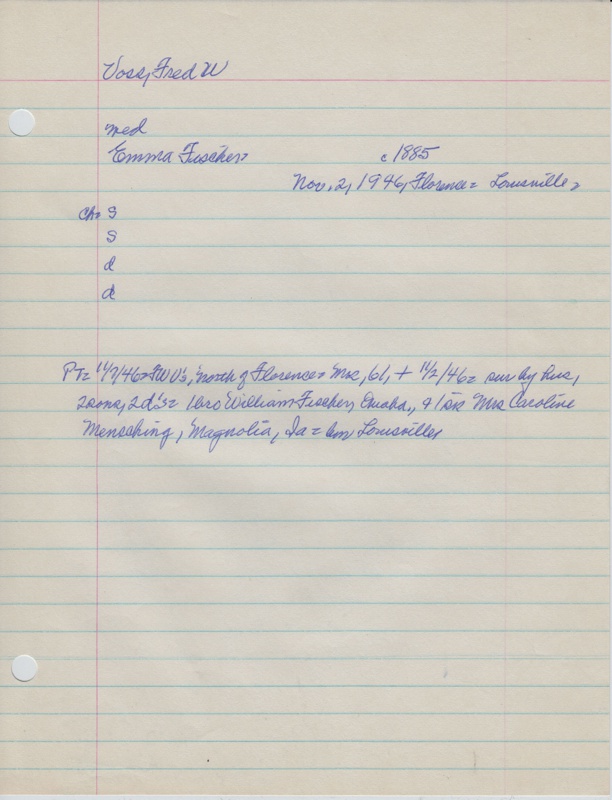 Voss, Fred W
med
Emma Fischer,
c 1885
Nov. 2, 1946, Florence = Louisville,
ch = s
s
d
d
PT = 11/7/46 = FWV's, north of Florence = Mrs, 61, + 11/2/46 = sur by hus,
2 sons, 2 d's = 1 bro William Fischer, Omaha,, & 1 sis Mrs Caroline
Mensching, Magnolia, Ia = bur Louisville